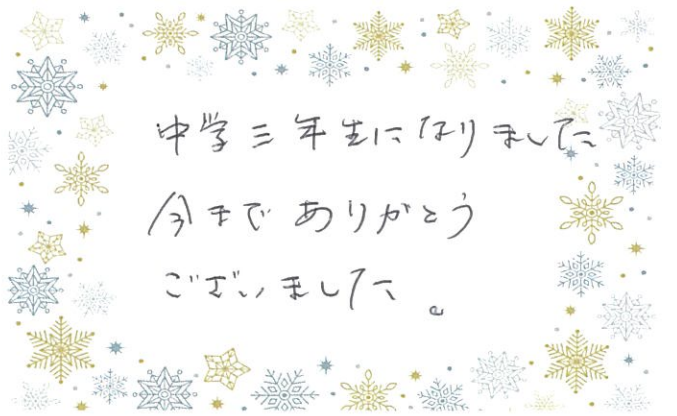 中学三年生になりました
今までありがとう
ございました。